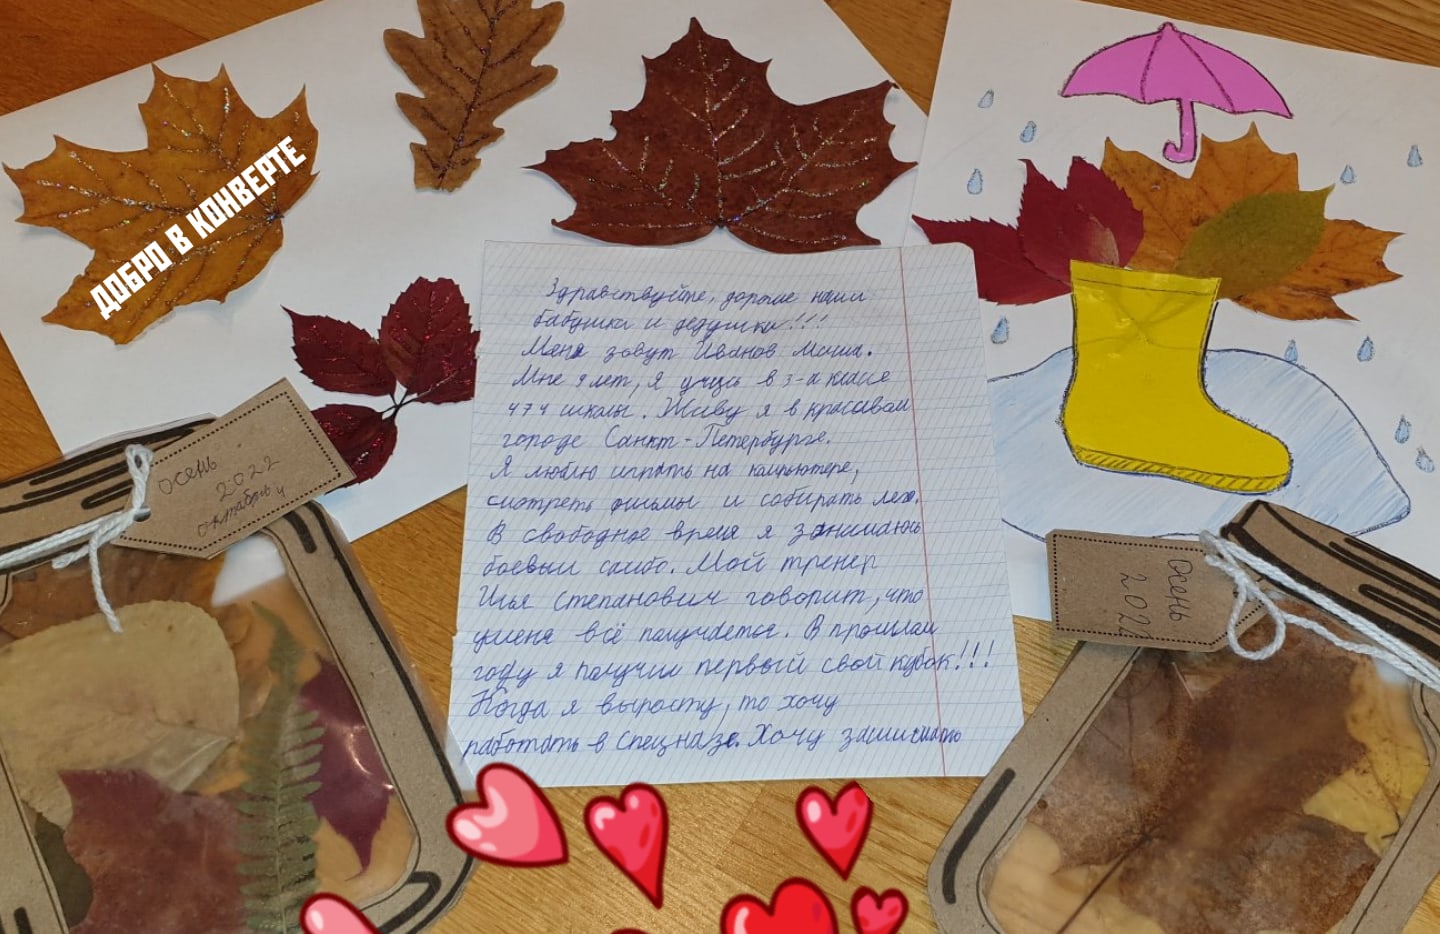 ДОБРО В КОНВЕРТЕ
Здравствуйте, дорогие наши
бабушки и дедушки!!!
Меня зовут Иванов Миша.
Мне 9 лет, я учусь в 3-а классе
474 школы. Живу я в красивом
городе Санкт-Петербурге.
Я люблю играть на компьютере,
смотреть фильмы и собирать лего.
В свободное время я занимаюсь
боевым самбо. Мой тренер
Илья степанович говорит, что
уменя всё получается. В прошлом
году я получил первый свой кубок!!!
Когда я вырасту, то хочу
работать в спецназе. Хочу защищать
осень
2022
октябрь
Осень
2022